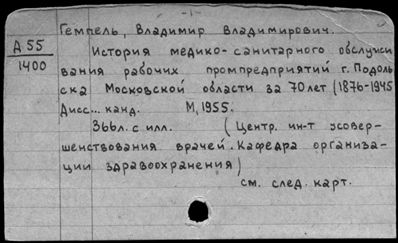 -1-
Гемпель, Владимир Владимирович.
Д 55
1400
История медико-санитарного обслужи
вания рабочих промпредприятий г. Подоль
ска Московской области за 70 лет (1876-1945
Дисс... канд. М, 1955.
366л. с илл. (Центр. ин-т усовер-
шенствования врачей. Кафедра организа-
ции здравоохранения)
см. след. карт.